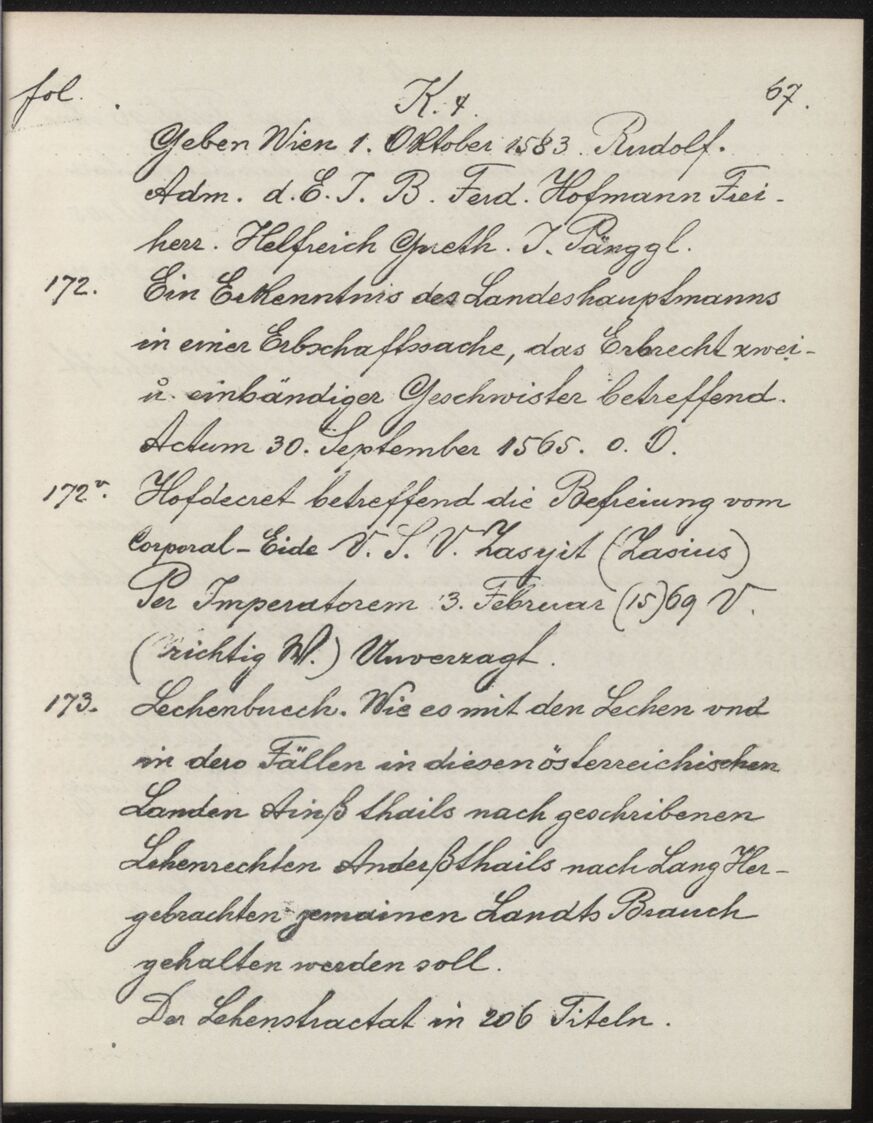 fol. K. 4. 67.
Geben Wien 1. Oktober 1583. Rudolf.
Adm. d. E. I. B. Ferd. Hofmann Frei-
herr. Helfreich Gueth. I. Pänggl.
172. Ein Erkenntnis des Landeshauptmanns
in einer Erbschaftssache, das Erbrecht zwei-
u. einbändiger Geschwister betreffend.
Actum 30. September 1565. o. O.
172v. Hofdecret betreffend die Befreiung vom
Corporal-Eide V. S. V. Zasyit (Zasius)
Per Imperatorem 3. Februar (15)69 V.
(richtig W.) Unverzagt.
173. Lechenbuech. Wie es mit den Lechen vnd
in dero Fällen in diesen österreichischen
Landen Ainß thails nach geschribenen
Lehenrechten Anderßthails nach Lang Her-
gebrachten gemainen Landts Brauch
gehalten werden soll.
Der Lehenstractat in 206 Titeln.